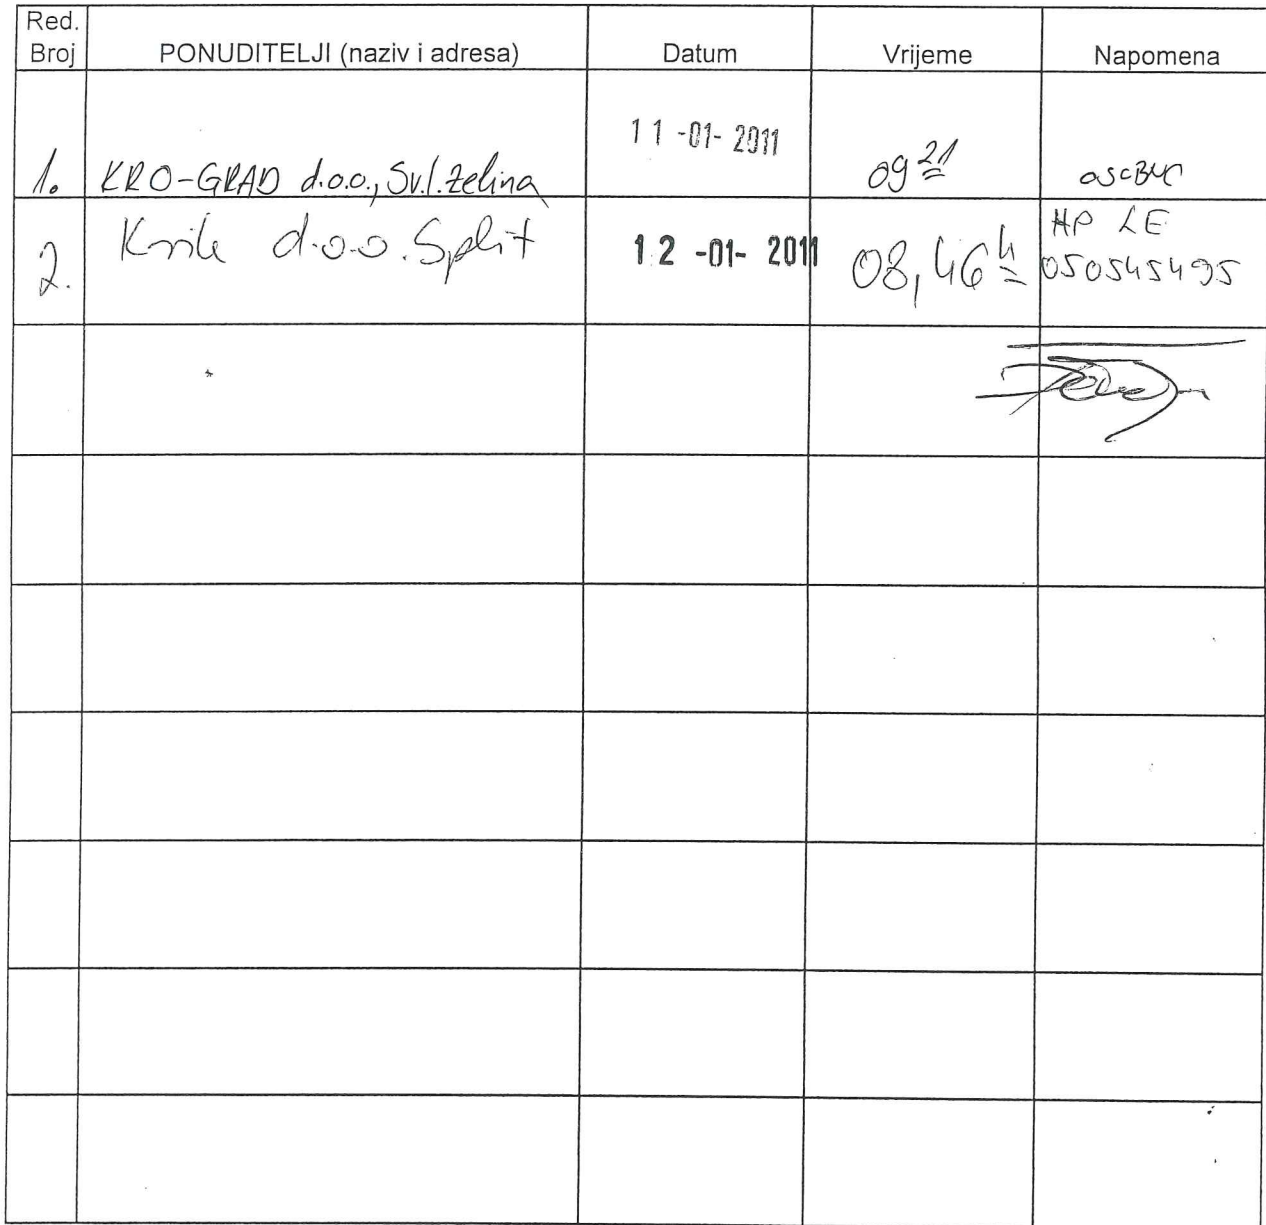 Red.
Broj PONUDITELJI (naziv i adresa) Datum Vrijeme Napomena
1. KRO-GRAD d.o.o., Sv.I.Zelina 11 -01- 2011 09 21 OSOBNO
2. d.o.o. Split 12 -01- 2011 08,46 h HP LE
050545495